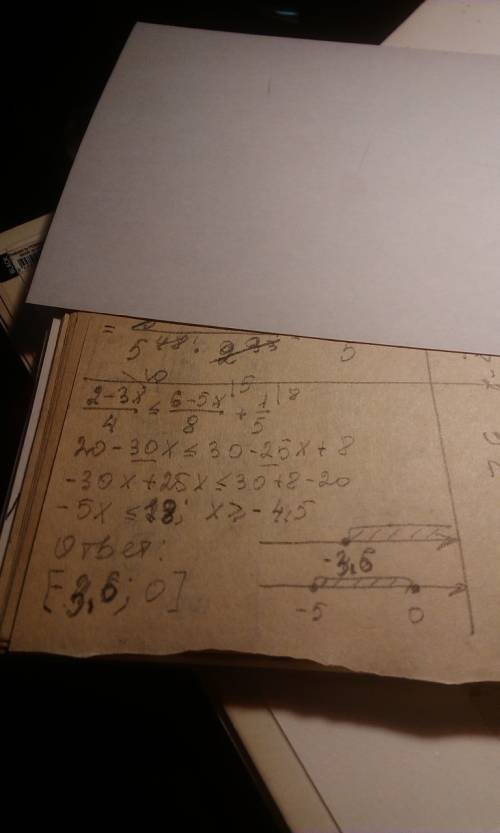 =
5⁴⁸ · 2³³ 5
(2-3x)/4 ≤ (6-5x)/8 + 1/5 \10 |5 |8
20-30x ≤ 30-25x+8
-30x+25x ≤ 30+8-20
-5x ≤ 18; x ≥ -4,5
Ответ:
[-3,6; 0]
-3,6
-5 0